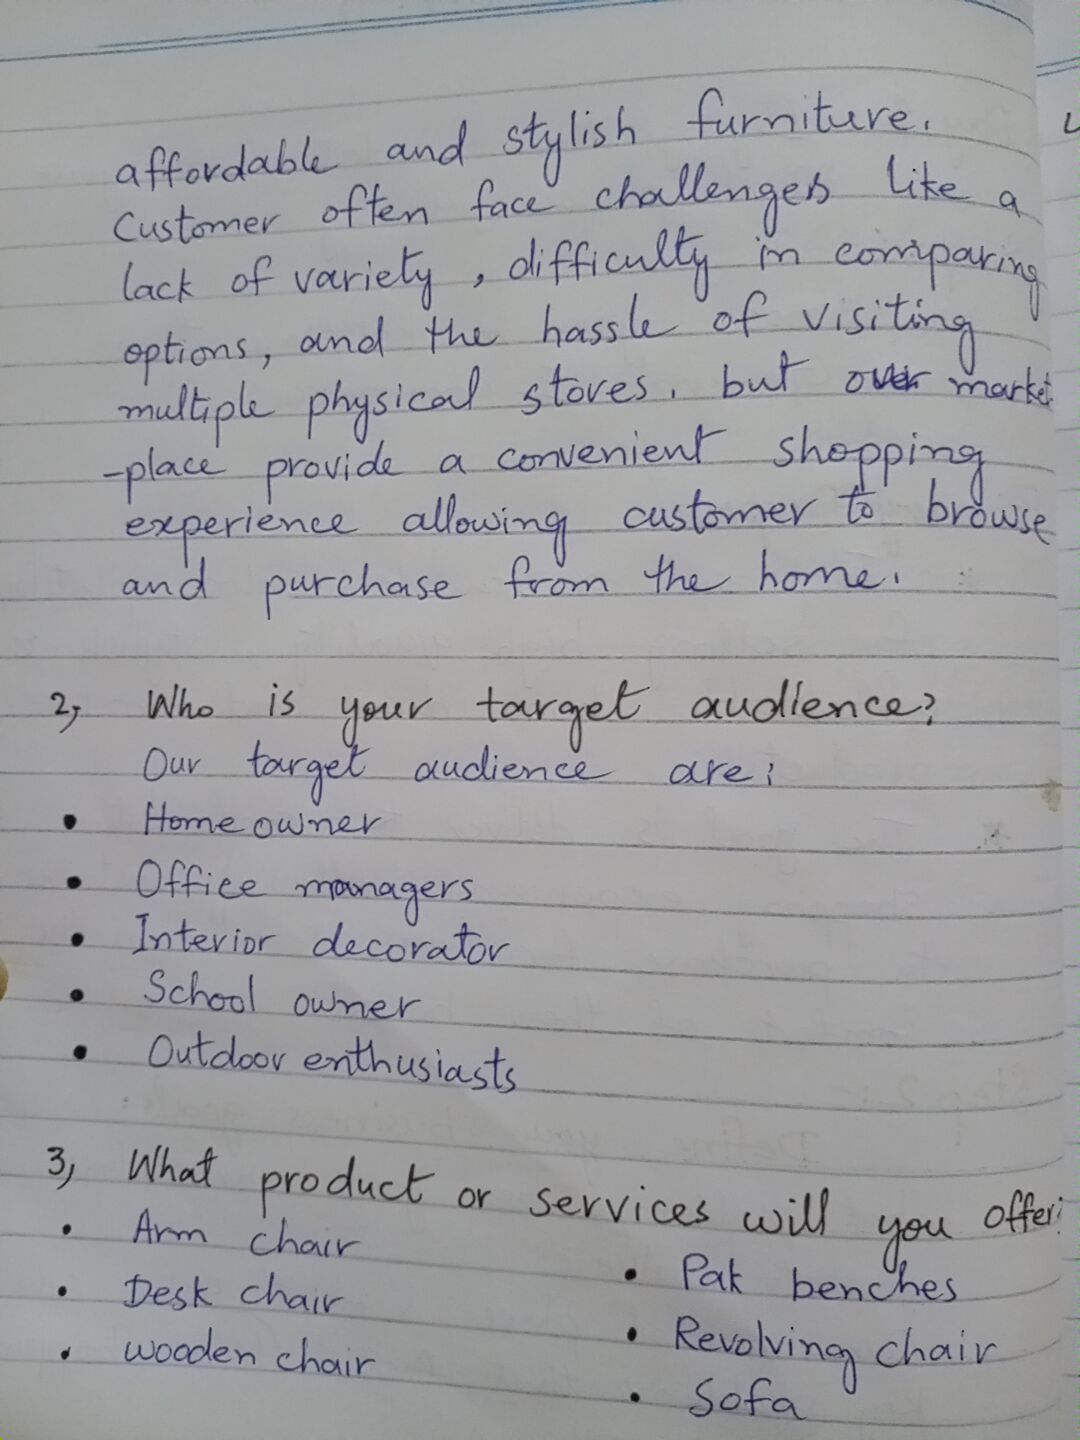 affordable and stylish furniture.
Customer often face challenges like a
lack of variety, difficulty in comparing
options, and the hassle of visiting
multiple physical stores. but our market
-place provide a convenient shopping
experience allowing customer to browse
and purchase from the home.
2, Who is your target audience?
Our target audience are:
• Home owner
• Office managers
• Interior decorator
• School owner
• Outdoor enthusiasts
3, What product or services will you offer:
• Arm chair
• Desk chair
• wooden chair
• Pak benches
• Revolving chair
• Sofa